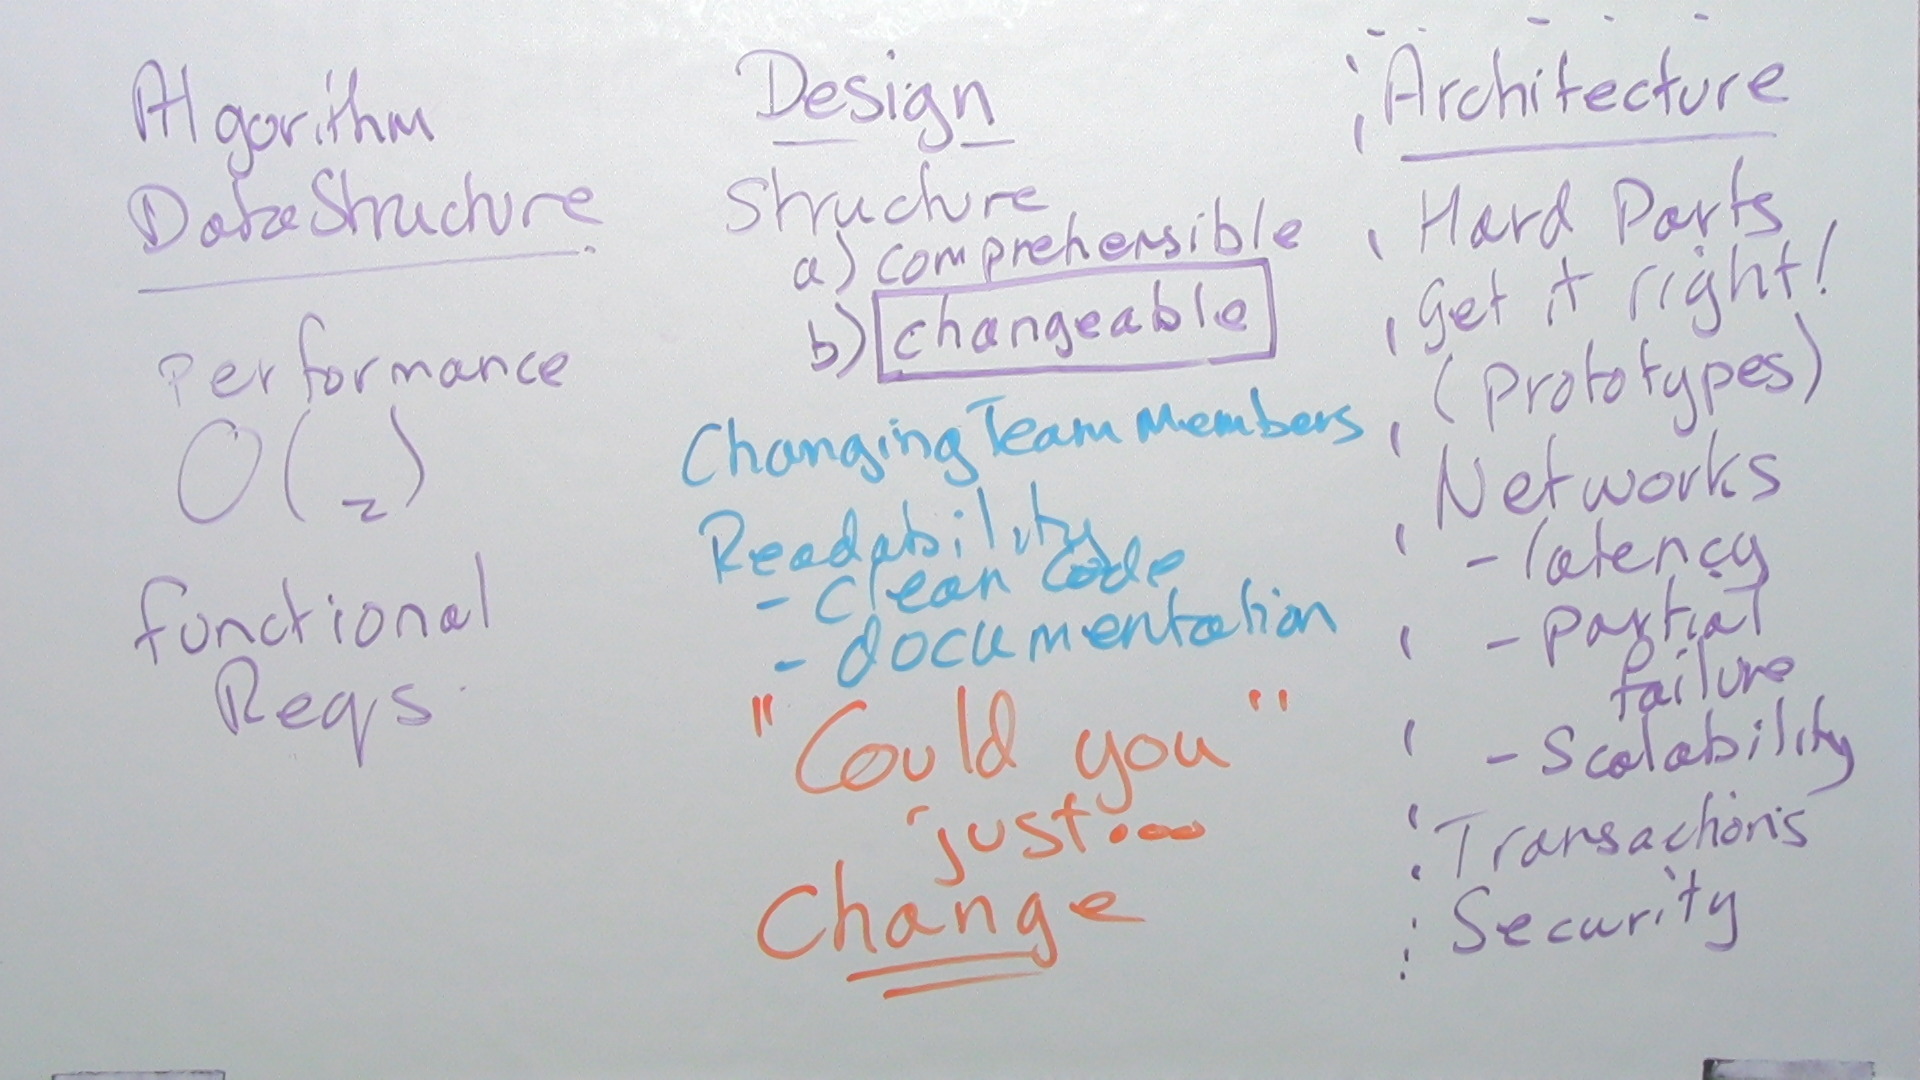 Algorithm
DataStructure
Performance
O( )
functional
Reqs.
Design
Structure
a) comprehensible
b) changeable
Changing Team Members
Readability
- clean code
- documentation
"Could you"
just...
Change
Architecture
Hard Parts
Get it right!
(Prototypes)
Networks
- latency
- partial
failure
- Scalability
Transactions
Security